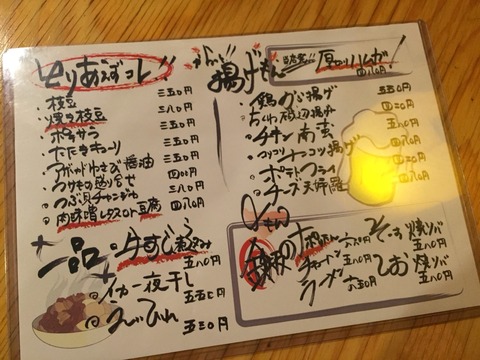 とりあえずコレ
枝豆 三五〇円
焼き枝豆 三八〇円
ポテサラ 三五〇円
たたきキューリ 三五〇円
アボカドわさび醤油 四〇〇円
つぶ貝チャンジャ
肉味噌レタスor豆腐 四八〇円
揚げもん
当店名物!! 厚切りハムカツ!
四八〇円
鶏から揚げ 五五〇円
ちくわ磯辺揚げ 四二〇円
チキン南蛮 五八〇円
コリコリナンコツ揚げ
ポテトフライ
チーズ天婦羅 四八〇円
一品
牛すじ煮込み
五八〇円
イカ一夜干し
五五〇円
えいひれ
五三〇円
鉄板
チャーハン 五八〇円
ラーメン 六五〇円
そーす焼ソバ 五八〇円
しお焼ソバ 五八〇円